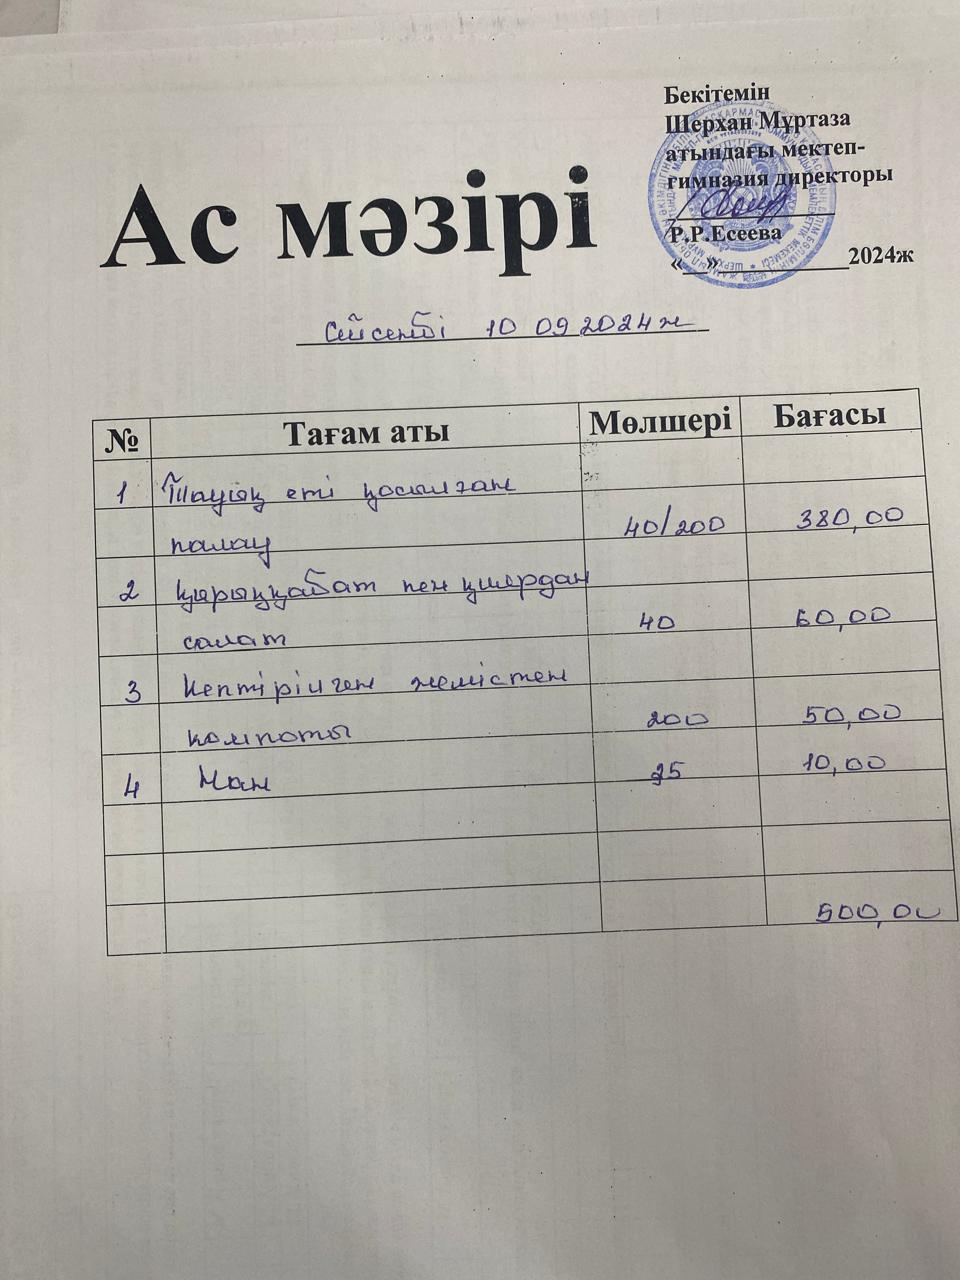 Бекітемін
Шерхан Мұртаза
атындағы мектеп-
гимназия директоры
Р.Р.Есеева
«__»__________2024ж
Ас мәзірі
Сейсенбі 10 09 2024ж
№ Тағам аты Мөлшері Бағасы
1 Тауық еті қосылған
палау 40/200 380,00
2 Қырыққабат пен қиярдан
салат 40 60,00
3 Кептірілген жемістен
компоты 200 50,00
4 Нан 25 10,00
500,00